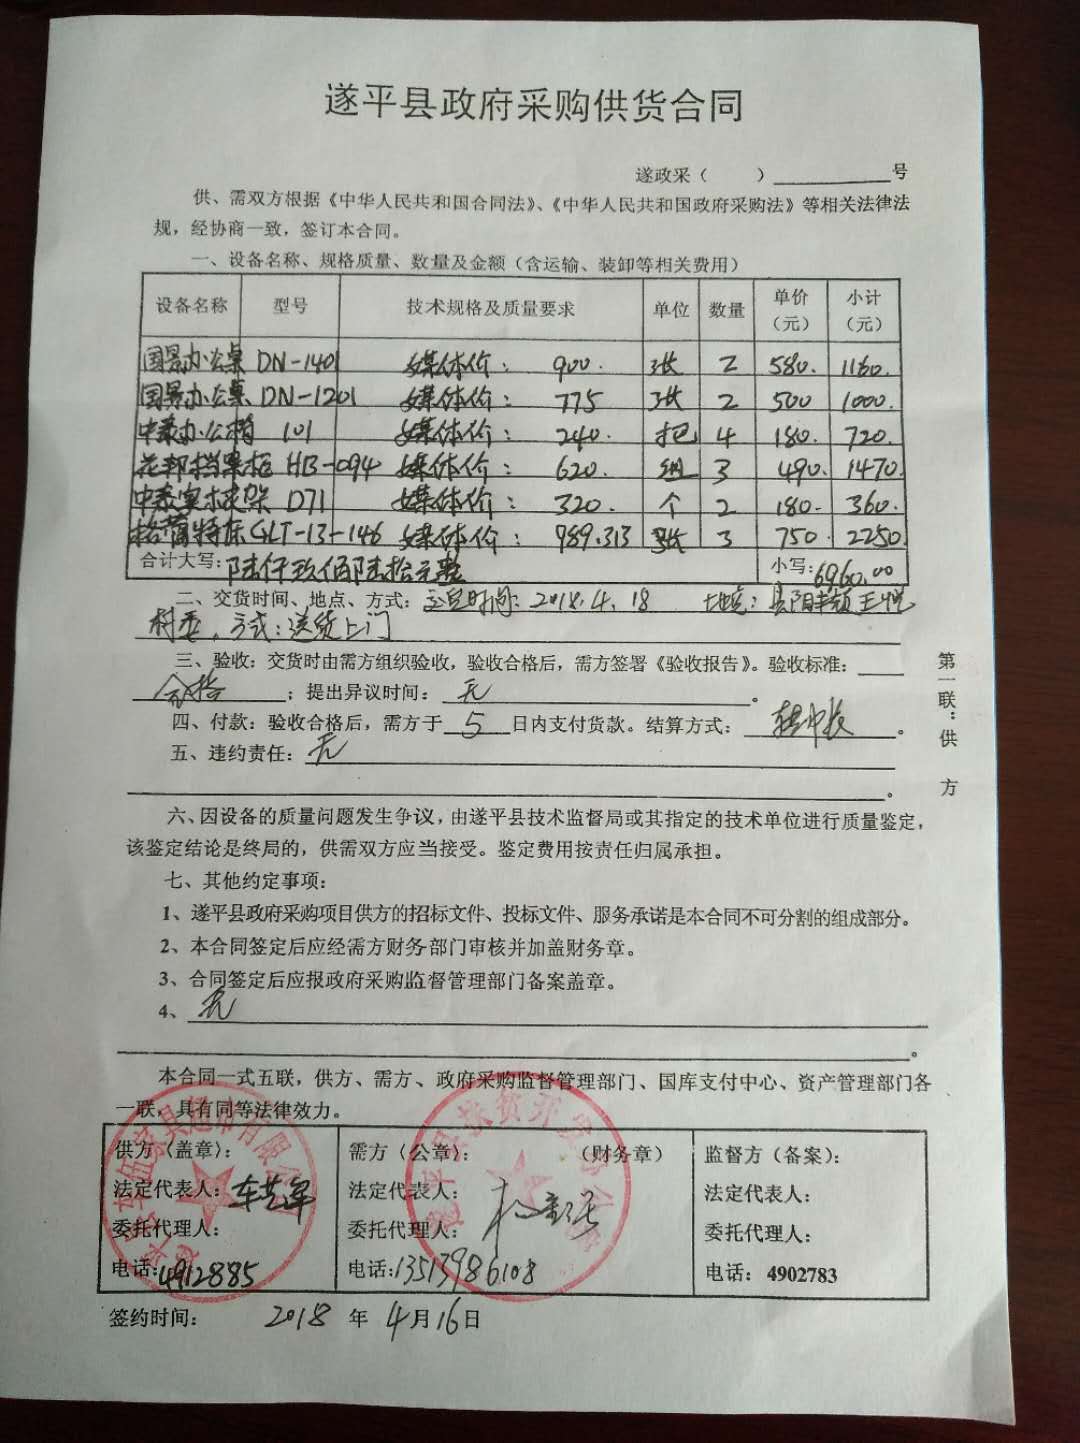 遂平县政府采购供货合同
遂政采（　　）　　　　号
供、需双方根据《中华人民共和国合同法》、《中华人民共和国政府采购法》等相关法律法
规，经协商一致，签订本合同。
一、设备名称、规格质量、数量及金额（含运输、装卸等相关费用）
设备名称 型号 技术规格及质量要求 单位 数量 单价（元） 小计（元）
国景办公桌 DN-1401 媒体价： 900. 张 2 580. 1160.
国景办公桌 DN-1201 媒体价： 775 张 2 500 1000.
中泰办公椅 101 媒体价： 240. 把 4 180. 720.
花邦档案柜 HB-094 媒体价： 620. 组 3 490. 1470.
中泰实木茶架 D71 媒体价： 320. 个 2 180. 360.
格蕾特床 GLT-13-146 媒体价： 989.313 张 3 750. 2250.
合计大写：陆仟玖佰陆拾元整 小写：6960.00
二、交货时间、地点、方式：交货时间：2018.4.18 地点：县阳丰镇王悦
村委，方式：送货上门
三、验收：交货时由需方组织验收，验收合格后，需方签署《验收报告》。验收标准：
合格；提出异议时间：无。
四、付款：验收合格后，需方于5日内支付货款。结算方式：转账。
五、违约责任：无
。
第一联：供方
六、因设备的质量问题发生争议，由遂平县技术监督局或其指定的技术单位进行质量鉴定，
该鉴定结论是终局的，供需双方应当接受。鉴定费用按责任归属承担。
七、其他约定事项：
1、遂平县政府采购项目供方的招标文件、投标文件、服务承诺是本合同不可分割的组成部分。
2、本合同签定后应经需方财务部门审核并加盖财务章。
3、合同签定后应报政府采购监督管理部门备案盖章。
4、无
。
本合同一式五联，供方、需方、政府采购监督管理部门、国库支付中心、资产管理部门各
一联，具有同等法律效力。
供方（盖章）： 需方（公章）： （财务章） 监督方（备案）：
法定代表人： 法定代表人： 法定代表人：
委托代理人： 委托代理人： 委托代理人：
电话：4912885 电话：13513986108 电话：4902783
签约时间： 2018 年 4月16日